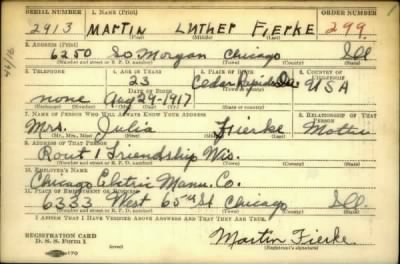 SERIAL NUMBER 1. NAME (Print) ORDER NUMBER
2913 MARTIN LUTHER FIERKE 299
(First) (Middle) (Last)
2. ADDRESS (Print)
6250 So Morgan Chicago Ill
(Number and street or R. F. D. number) (Town) (County) (State)
3. TELEPHONE 4. AGE IN YEARS 5. PLACE OF BIRTH 6. COUNTRY OF CITIZENSHIP
23 Cedar Rapids USA
DATE OF BIRTH
none Aug 29-1917
(Exchange) (Number) (Mo.) (Day) (Yr.) (State or country)
7. NAME OF PERSON WHO WILL ALWAYS KNOW YOUR ADDRESS 8. RELATIONSHIP OF THAT PERSON
Mrs. Julia Fierke Mother
(Mr., Mrs., Miss) (First) (Middle) (Last)
9. ADDRESS OF THAT PERSON
Rout 1 Friendship Wis.
(Number and street or R. F. D. number) (Town) (County) (State)
10. EMPLOYER'S NAME
Chicago Eletric Manu. Co.
11. PLACE OF EMPLOYMENT OR BUSINESS
6333 West 65th St Chicago Ill.
(Number and street or R. F. D. number) (Town) (County) (State)
I AFFIRM THAT I HAVE VERIFIED ABOVE ANSWERS AND THAT THEY ARE TRUE.
REGISTRATION CARD
D. S. S. Form 1
Martin Fierke
(Registrant's signature)